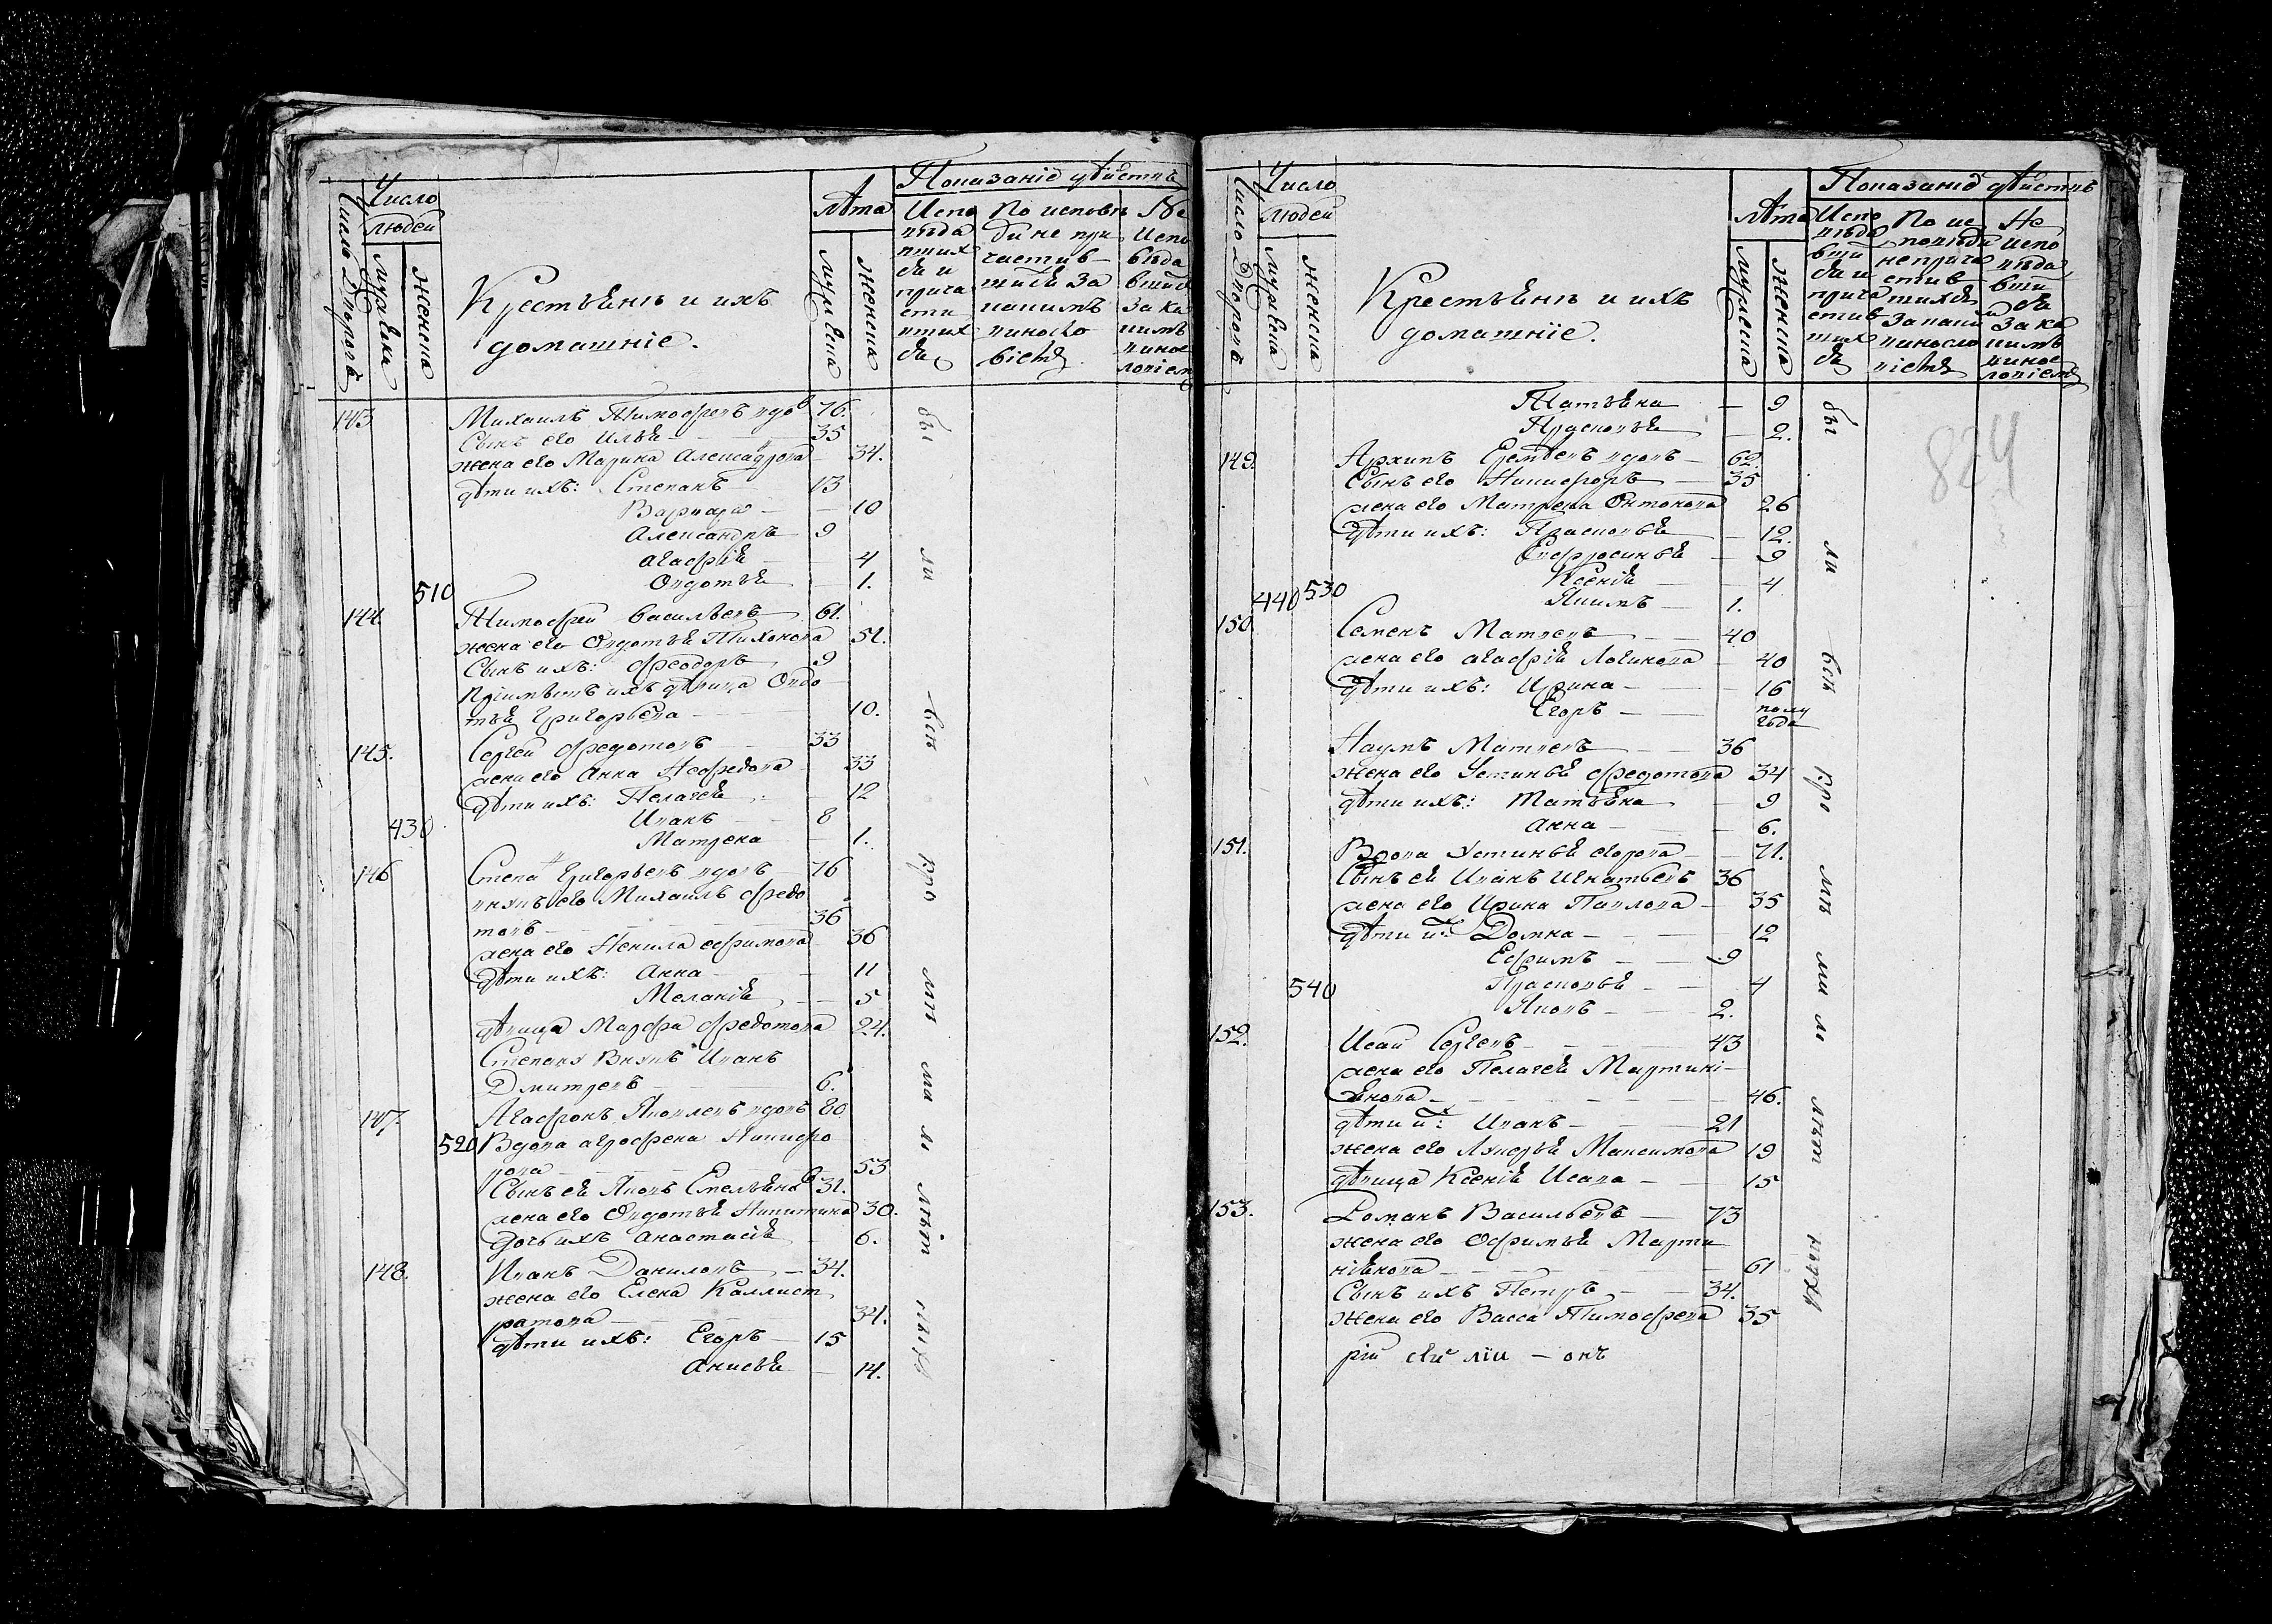 Число Дворовъ
Число людей
мужеска
женска
Крестьянѣ и ихъ
домашніе.
Лѣта
мужеска
женска
Показаніе дѣйствъ
Испо
вѣда
вших
ся и
прича
сти
вших
ся
По испов
ди не при
частив
шихся за
какимъ
виносло
віемъ
Не
Испо
вѣда
вших
за ка
кимъ
винос
ловіем
143 Михаилъ Тимофеевъ вдов 76.
Сынъ его Илья — 35
жена его Марина Александрова 34.
дѣти ихъ: Степанъ 13
Варвара — 10
Александръ 9
Агафія — 4
510 Овдотья — 1.
144 Тимофей Васильевъ 61.
жена его Овдотья Тихонова 51.
Сынъ ихъ: Феодоръ 9
Пріимышъ ихъ дѣвица Овдо
тья Григорьева — 10.
145. Сергей Федотовъ 33
жена его Анна Нефедова 33
дѣти ихъ: Пелагея — 12
430 Иванъ — 8
Матрена — 1.
146 Степа Григорьевъ вдовъ 76
внукъ его Михаилъ Федо
товъ — 36
жена его Ненила Ефимова 36
дѣти ихъ: Анна — 11
Меланія — 5
дѣвица Марфа Федотова 24.
Степана Внукъ Иванъ
Дмитревъ — 6.
147. Агафонъ Яковлевъ вдовъ 80
520 Вдова Агрофена Никифо
рова — 53
Сынъ ея Яковъ Емельянов 31.
жена его Овдотья Никитина 30.
Дочь ихъ Анастасія — 6.
148. Иванъ Даниловъ — 34.
жена его Елена Каллист
ратова — 34.
дѣти ихъ: Егоръ — 15
Анисья — 14.
бы
ли
всѣ
кро
мѣ
ма
ло
лѣт
ныхъ
Число Дворовъ
Число людей
мужеска
женска
Крестьянѣ и ихъ
домашніе.
Лѣта
мужеска
женска
Показаніе дѣйствъ
Испо
вѣда
вши
ся и
прича
стив
ших
ся
По ис
повѣди
не прича
стив
шихся
за каки
виносло
віемъ
Не
испо
вѣда
вши
ся
за ка
кимъ
винос
ловіемъ
824
Татьяна — 9
Прасковья — 2.
149. Архипъ Еремѣевъ вдовъ — 62.
Сынъ его Никифоръ — 35
жена его Матрена Онтонова 26
дѣти ихъ: Прасковья — 12.
Ефросинья — 9
Ксенія — 4
440 530 Якимъ — 1.
150. Семенъ Матвеевъ — 40
жена его Агафія Логинова — 40
дѣти ихъ: Ирина — 16
Егоръ — полу
года
Наумъ Матвеевъ — 36
жена его Устинья Федотова 34
дѣти ихъ: Татьяна — 9
Анна — 6.
151. Вдова Устинья Егорова — 71.
Сынъ ея Иванъ Игнатьевъ 36
жена его Ирина Павлова — 35
дѣти их: Домна — 12
Ефимъ — 9
540 Прасковья — 4
Яковъ — 2.
152. Исай Сергеевъ — 43
жена его Пелагея Мартині-
янова — 46.
дѣти их: Иванъ — 21
жена его Лукерья Максимова 19
дѣвица Ксенія Исаева — 15
153. Романъ Васильевъ — 73
жена его Офимья Марти
ніянова — 61
Сынъ ихъ Петръ — 34.
жена его Васса Тимофеева 35
рій сей лїи — онъ
бы
ли
всѣ
кро
мѣ
ма ло
лѣт
ныхъ